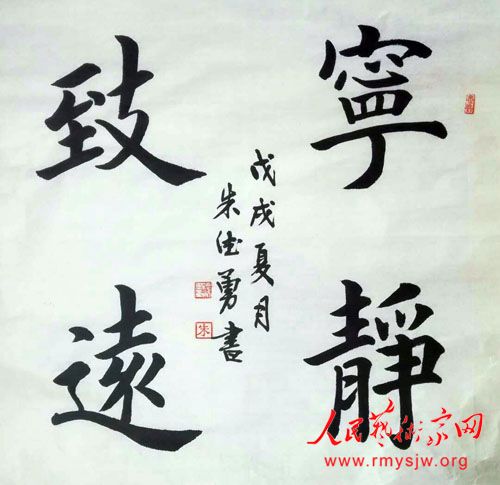 寧靜
致遠
戊戌夏月
朱德勇書
人民藝術家网
www.rmysjw.org